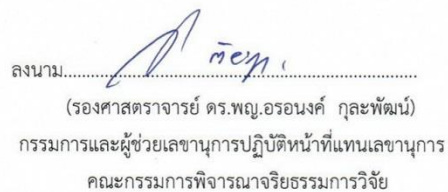 ลงนาม................................................................
(รองศาสตราจารย์ ดร.พญ.อรอนงค์ กุละพัฒน์)
กรรมการและผู้ช่วยเลขานุการปฏิบัติหน้าที่แทนเลขานุการ
คณะกรรมการพิจารณาจริยธรรมการวิจัย